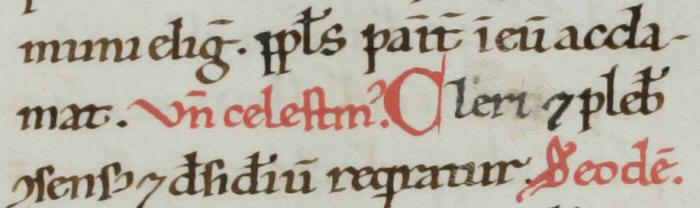 muni elig̅. ppl̅s pat̅it̅ i eu̅ accla-
mat. Vn̅ celestin᷒. Cleri ⁊ pleb̅
ꝯsensꝰ ⁊ d̅sid̅iu̅ reqͥratur. S eode̅.